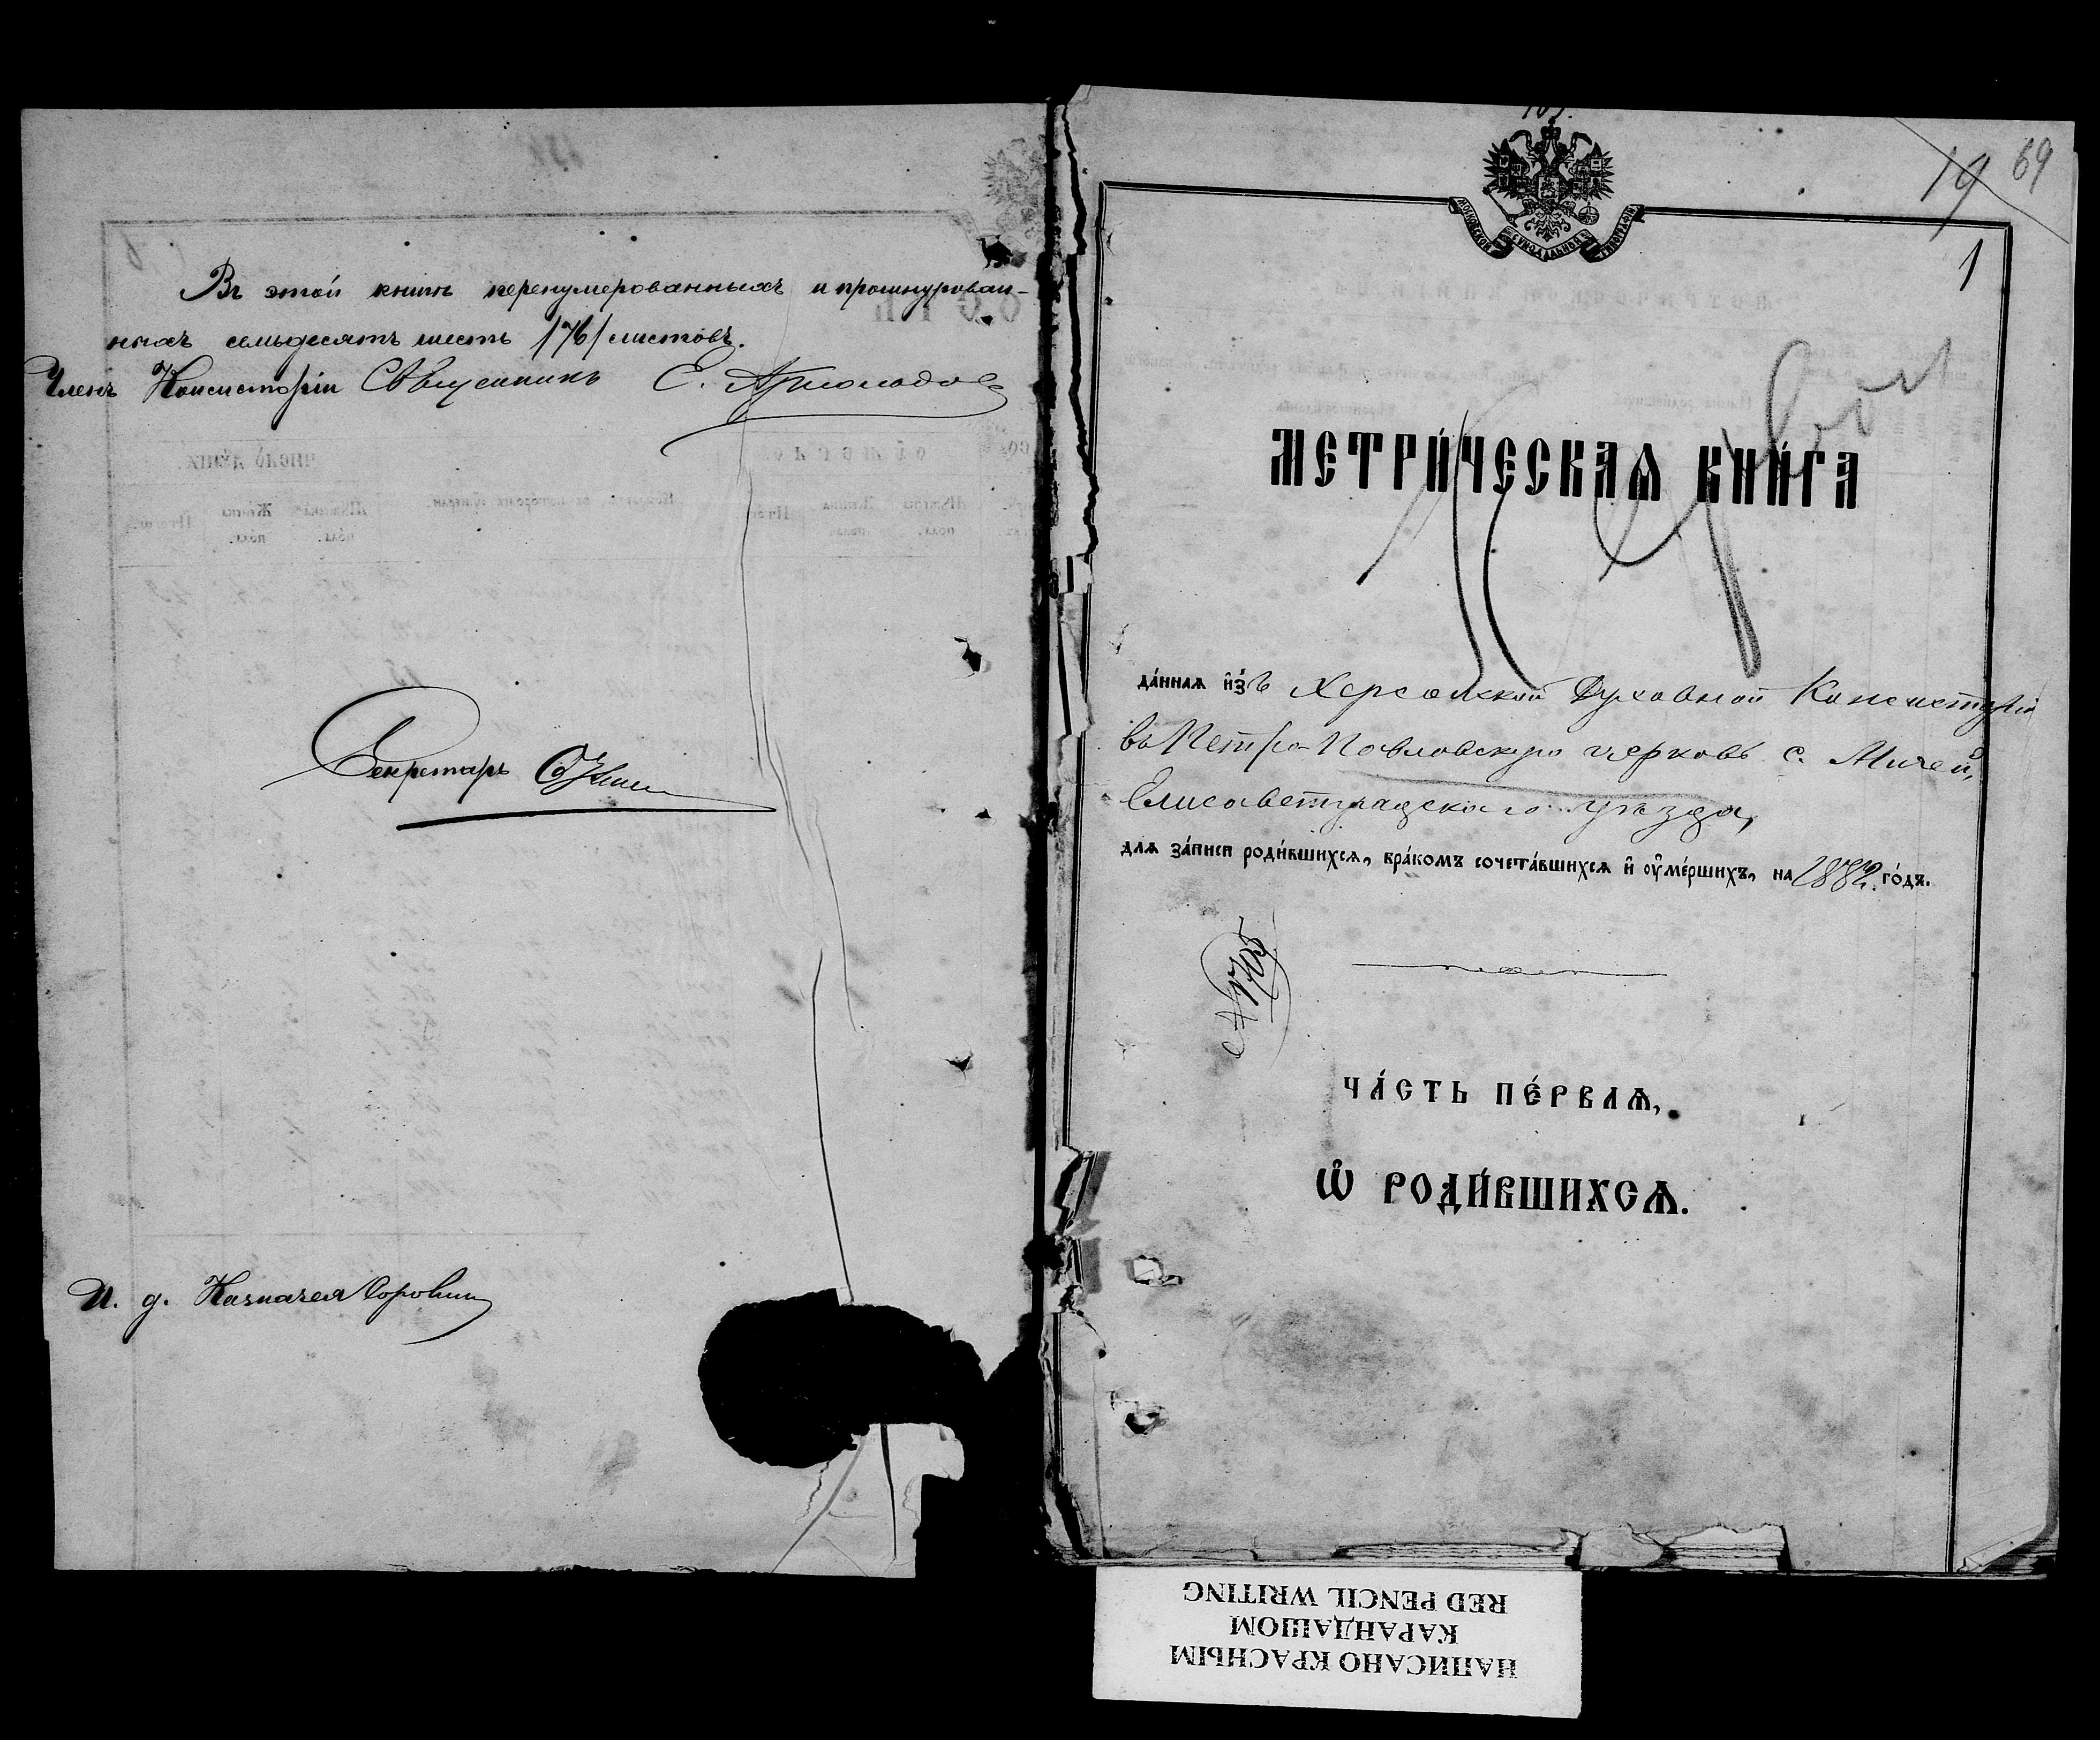 Въ этой книгѣ перенумерованныхъ и прошнурован-
ныхъ семьдесятъ шесть /76/ листовъ.
Членъ Консисторіи Священникъ Е.
Секретарь
И. д. Казначея
69
19
1
МОСКОВСКОЙ СѴНОДАЛЬНОЙ ТИПОГРАФІИ
МЕТРИ́ЧЕСКАѦ КНИ́ГА
да́ннаѧ и҆з̾ Херсонской Духовной Консисторіи
въ Петро-Павловскую церковь с.
Елисаветградскаго уѣзда,
длѧ за́писи роди́вшихсѧ, бра́комъ сочета́вшихсѧ и҆ ᲂу҆ме́ршихъ, на 1882. го́дъ.
№ 1705
ЧА́СТЬ ПЕ́РВАѦ,
Ѡ҆ РОДИ́ВШИХСѦ.
НАПИСАНО КРАСНЫМ
КАРАНДАШОМ
RED PENCIL WRITING